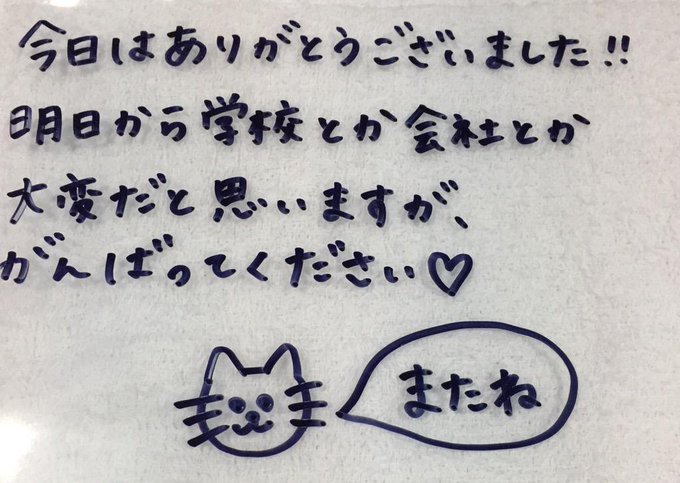 今日はありがとうございました!!
明日から学校とか会社とか
大変だと思いますが、
がんばってください♡
またね